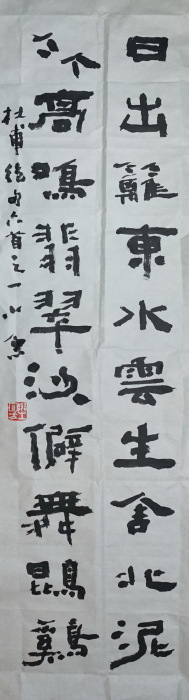 日出籬東水雲生舍北泥
竹高鳴翡翠沙僻舞鵾鷄
杜甫絕句六首之一